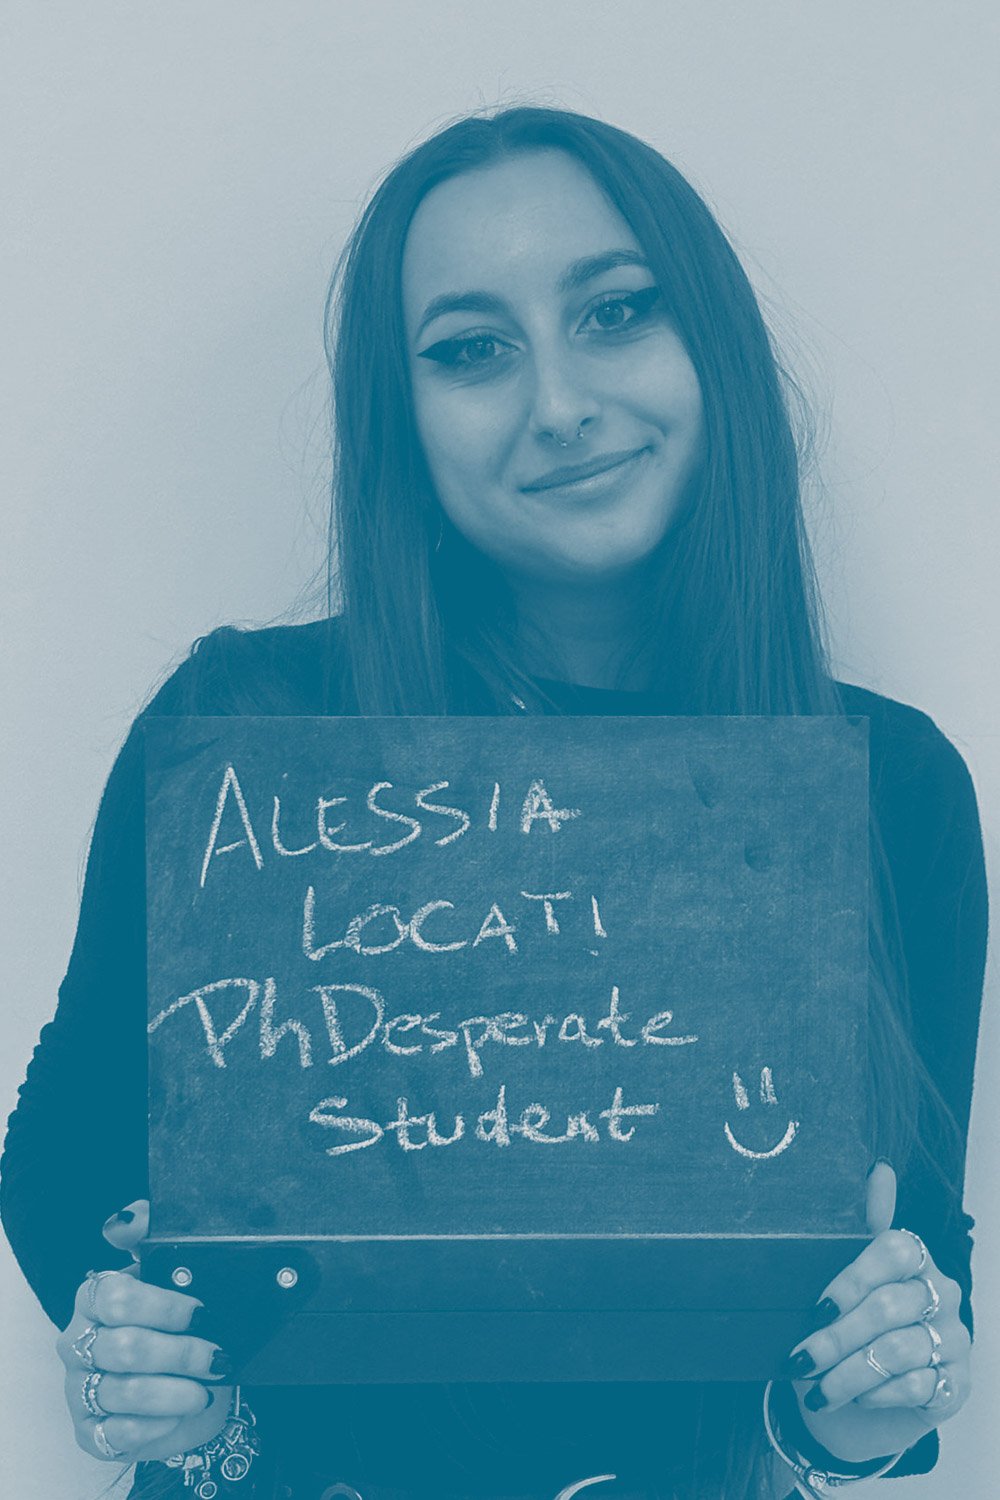 ALESSIA
LOCATI
PhDesperate
Student